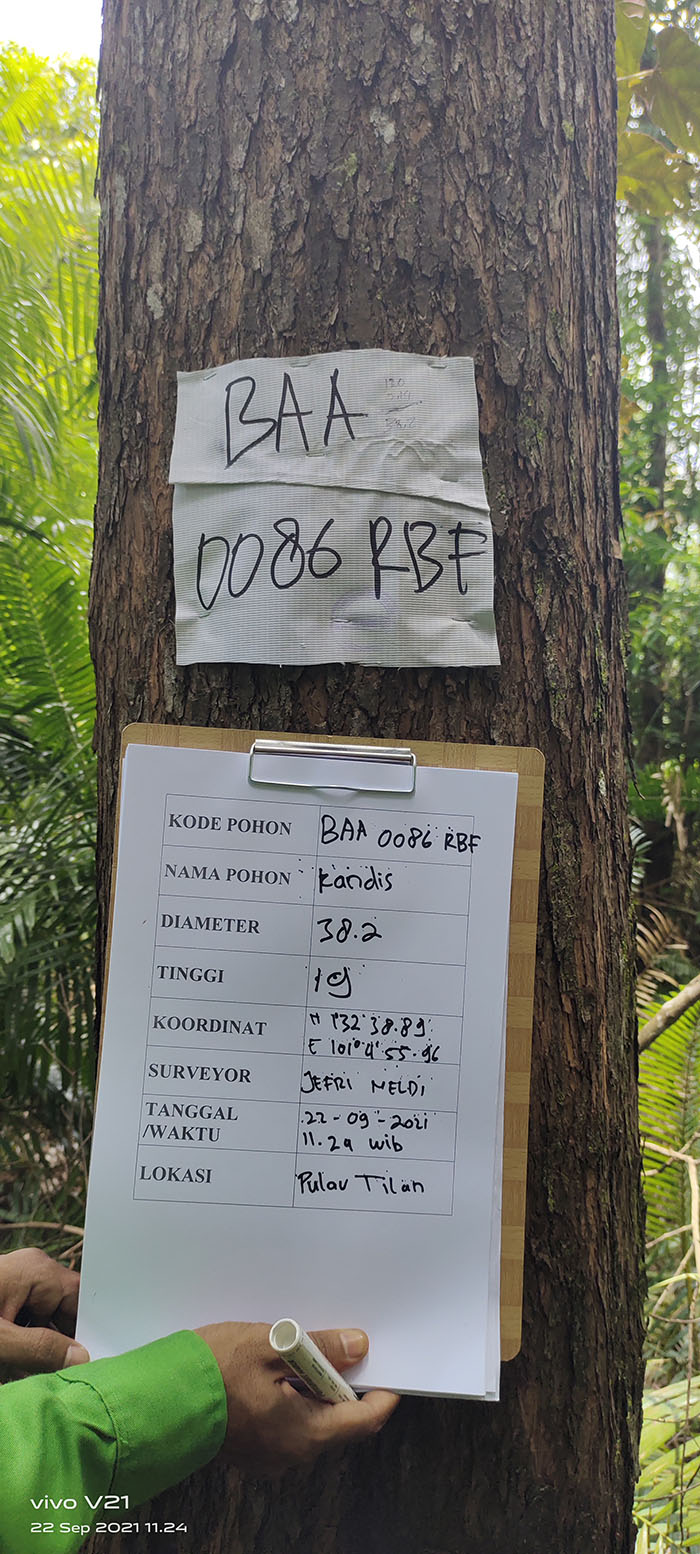 BAA
0086 RBF
KODE POHON BAA 0086 RBF
NAMA POHON Kandis
DIAMETER 38.2
TINGGI 19
KOORDINAT N 1°32'38.89"
E 101°4'55.96
SURVEYOR JEFRI MELDI
TANGGAL 22-09-2021
/WAKTU 11.29 wib
LOKASI Pulau Tilan
vivo V21
22 Sep 2021 11.24